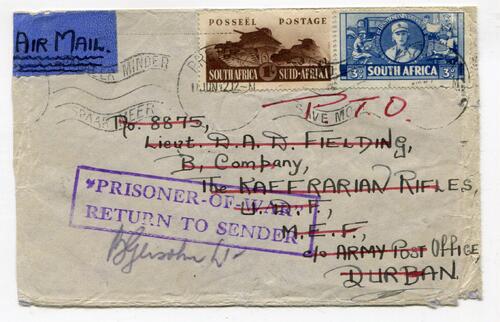 AIR MAIL.
POSSEËL POSTAGE
SOUTH AFRICA 1/- SUID-AFRIKA
SOUTH AFRICA
3d 3d
MINDER
SPAAR MEER
SAVE MO
P.T.O.
No. 8875,
Lieut. D.A.D. FIELDING,
B. Company,
The KAFFRARIAN RIFLES,
U.D.F,
M.E.F,
c/o ARMY POST OFFICE,
DURBAN.
*PRISONER-OF-WAR
RETURN TO SENDER